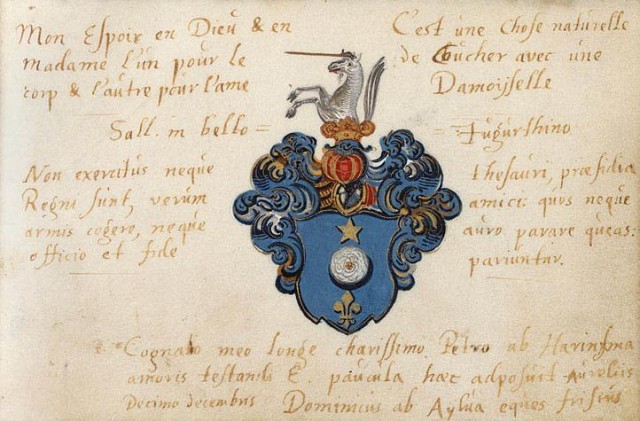 Mon Espoir en Dieu & en
Madame L'un pour le
corp & l'autre pour l'ame
C'est une Chose naturelle
de Coucher avec une
Damoisselle
Sall. in bello = = Jugurthino
Non exercitus neque
Regni sunt, verum
armis cogere, neque
officio et fide
thesauri, præsidia
amici: quos neque
auro parare queas:
pariuntur.
Cognato meo longe charissimo Petro ab Harinxma
amoris testandi E. paucula hæc adposuit Aureliis
Decimo decembris Dominicus ab Aylua eques frisius